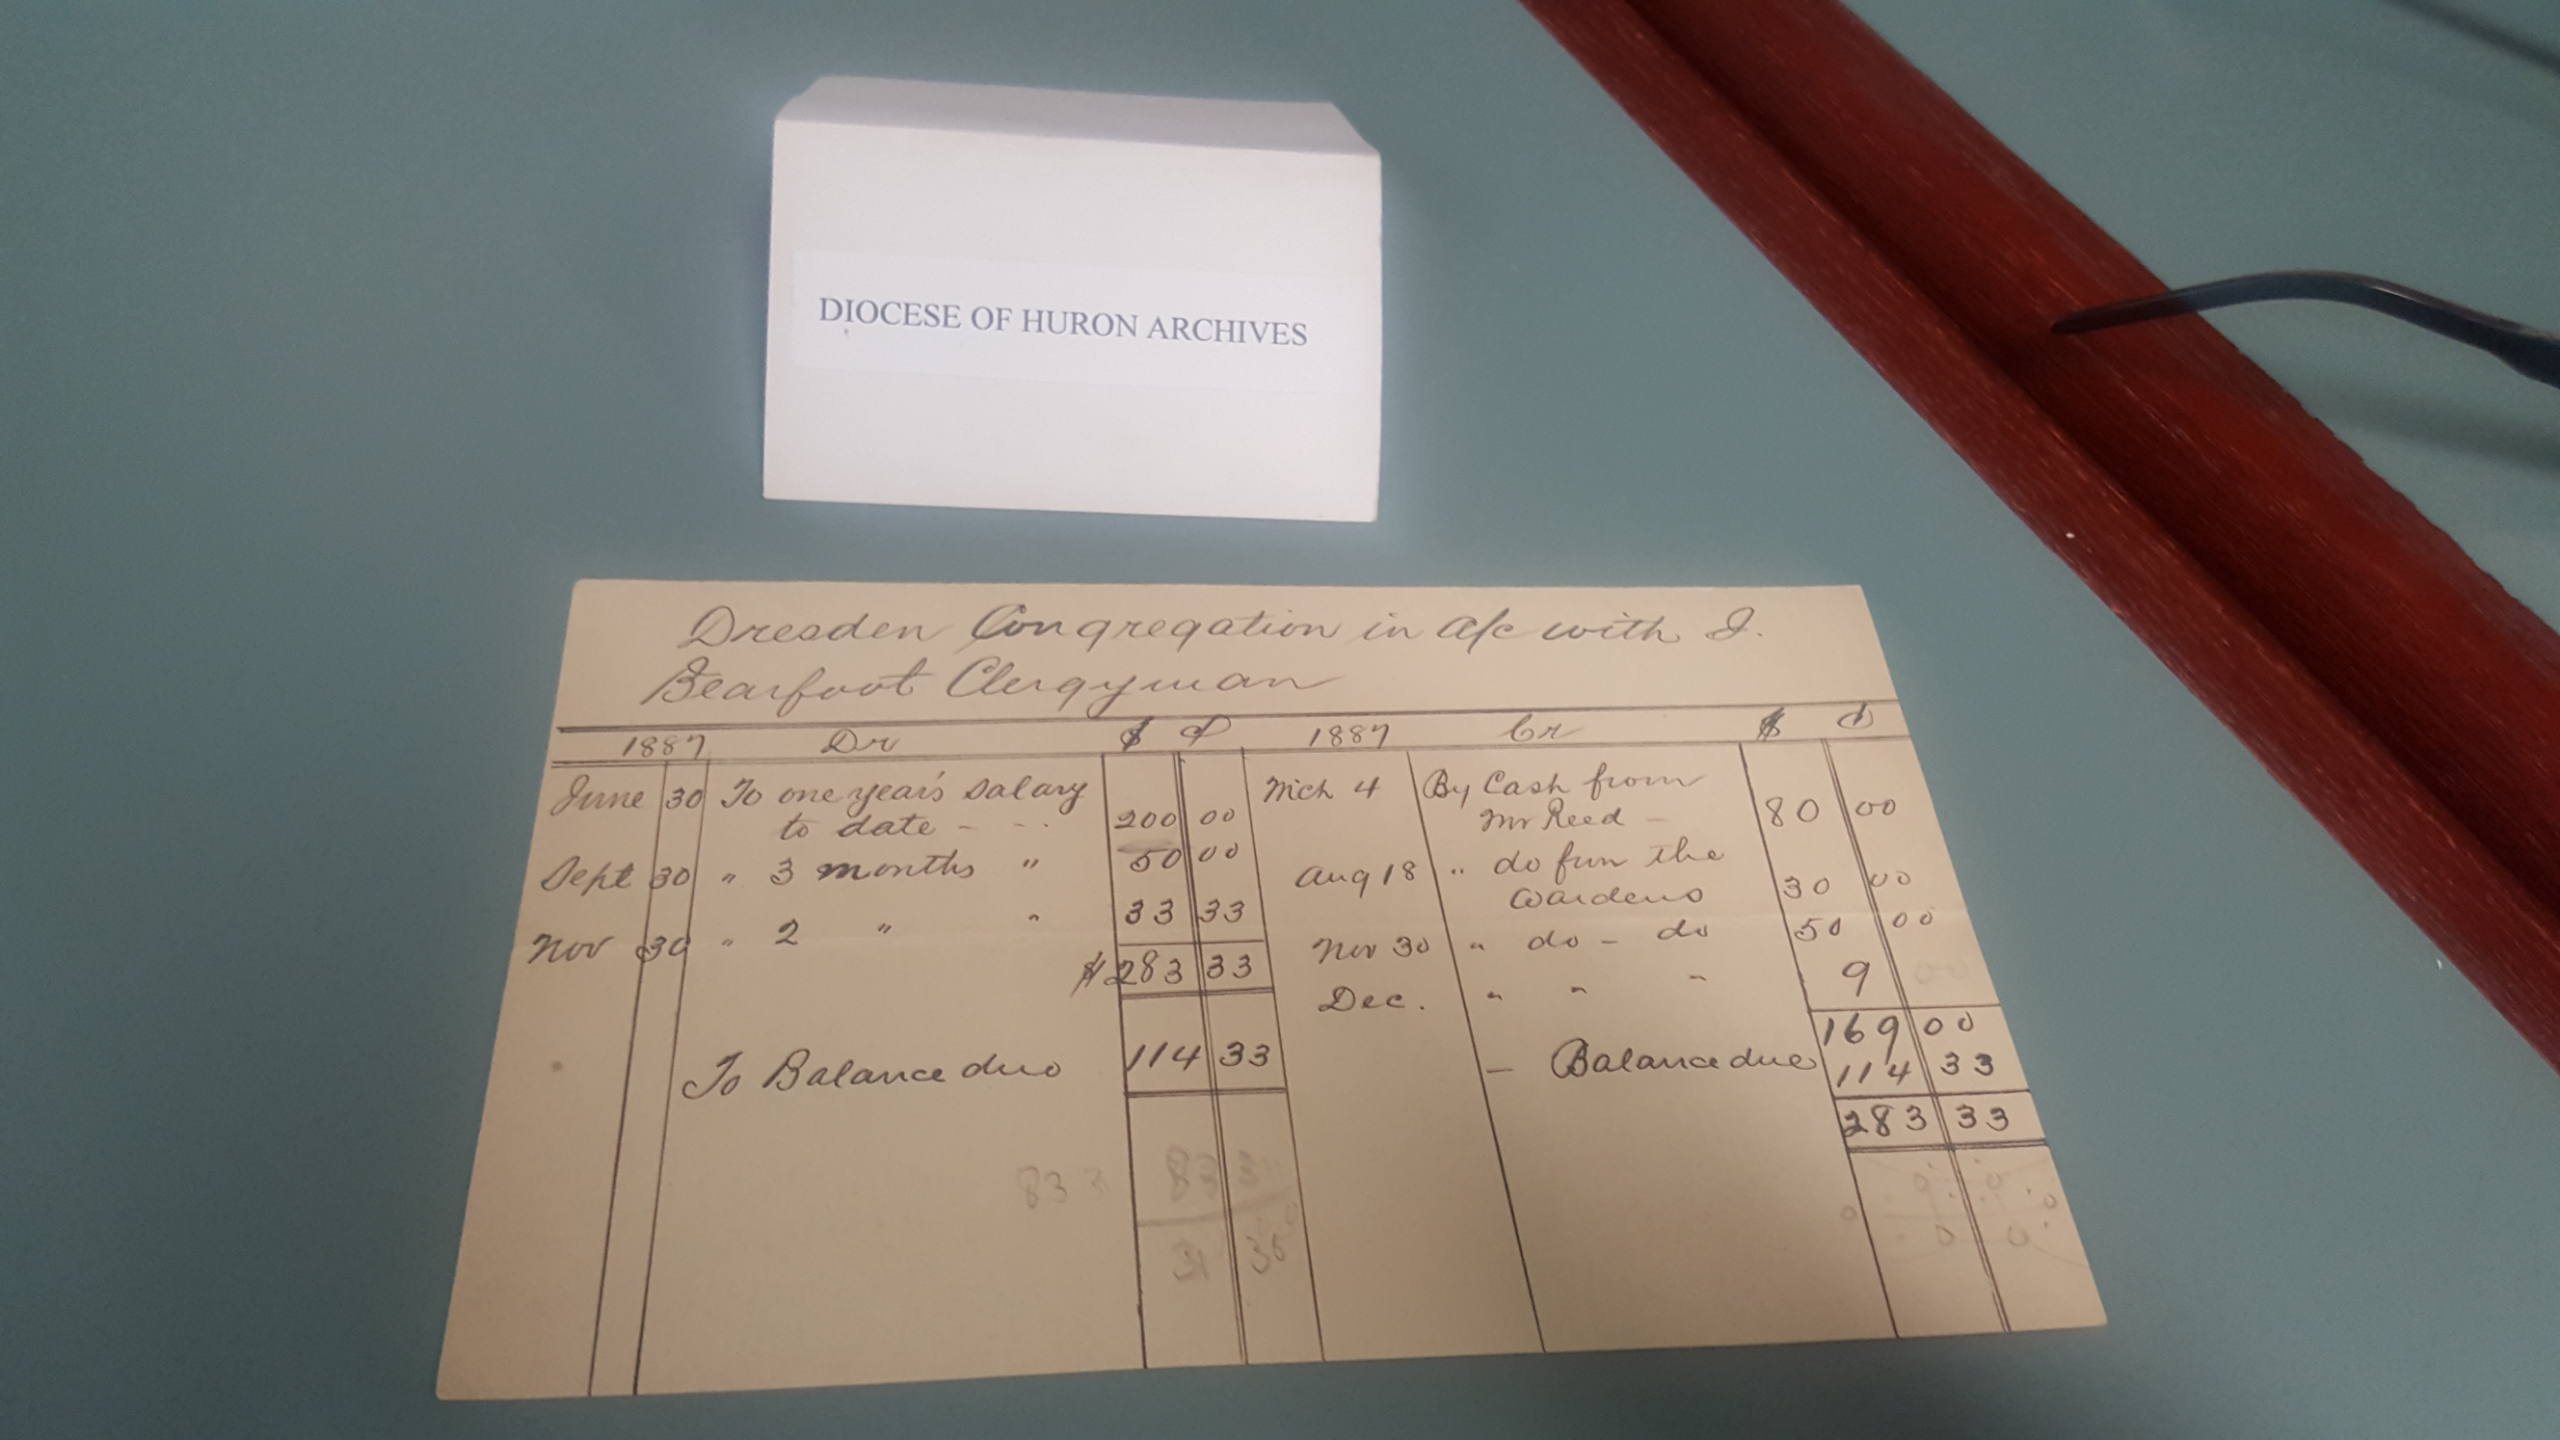 DIOCESE OF HURON ARCHIVES
Dresden Congregation in a/c with I.
Bearfoot Clergyman
1887 Dr $ ₵ 1887 Cr $ ₵
June 30 To one year's salary
to date - - - 200 00
Sept 30 " 3 months " 50 00
Nov 30 " 2 " " 33 33
$ 283 33
To Balance due 114 33
Mch 4 By Cash from
Mr Reed - 80 00
Aug 18 " do fun the
Wardens 30 00
Nov 30 " do - do 50 00
Dec. " " " 9 00
169 00
- Balance due 114 33
283 33